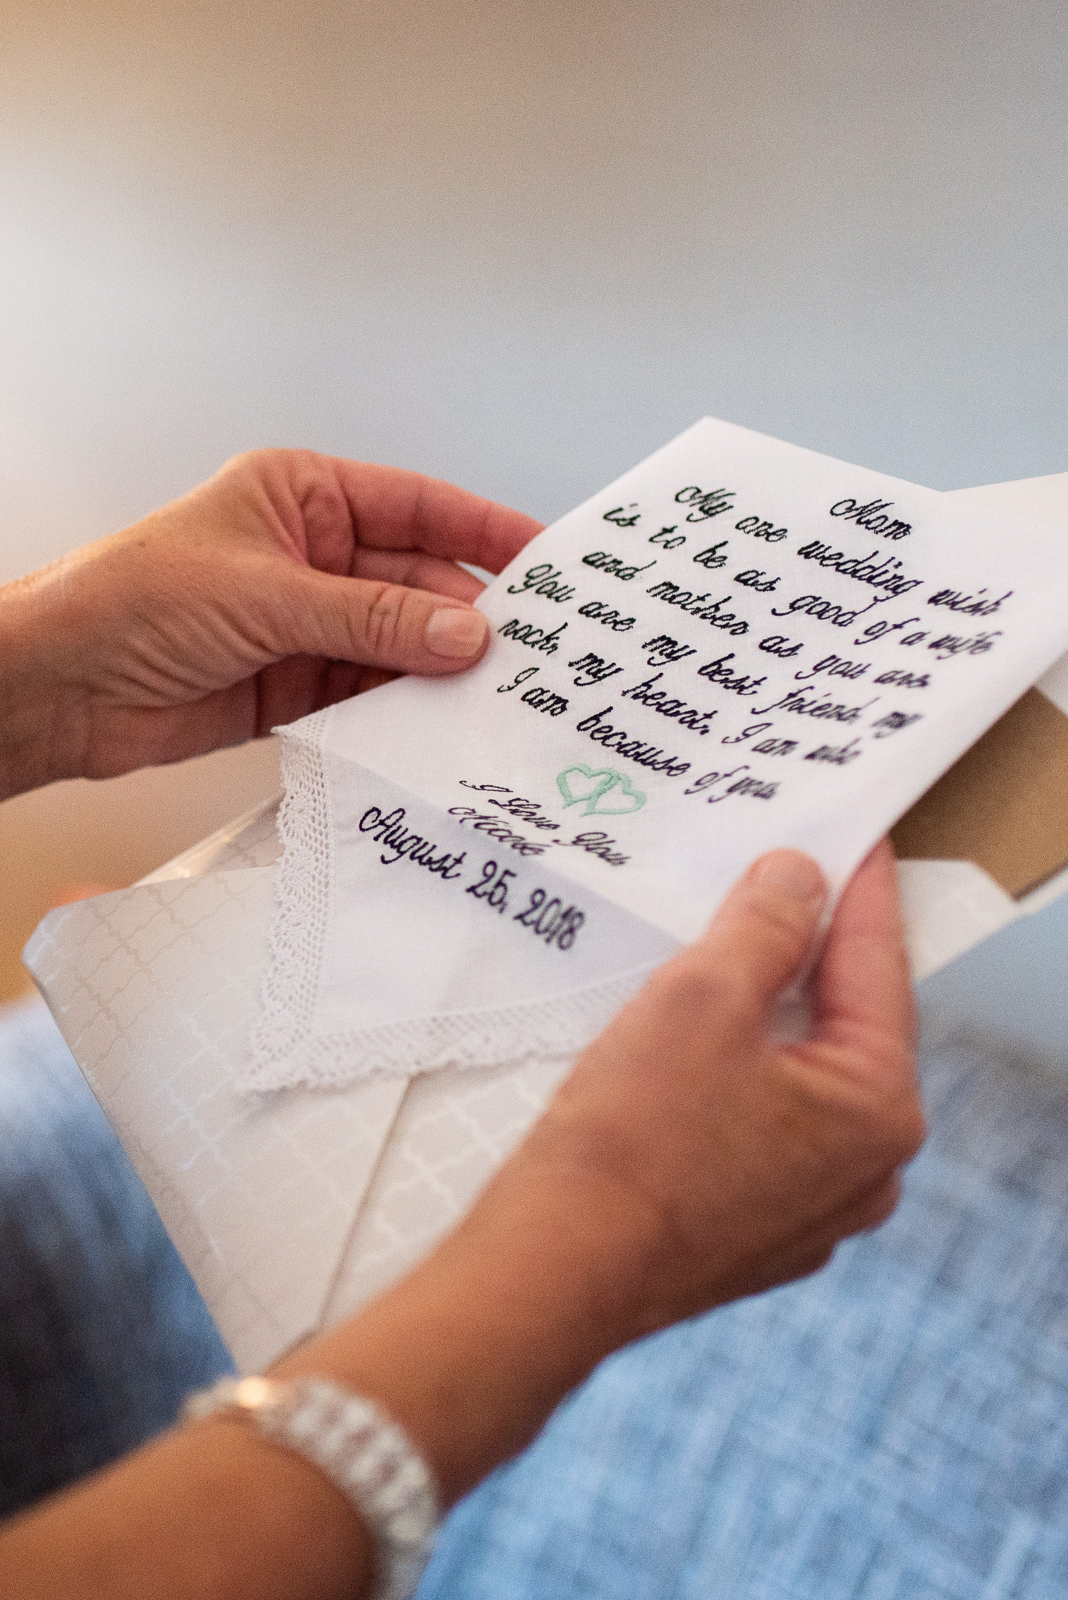 Mom
My one wedding wish
is to be as good of a wife
and mother as you are.
You are my best friend, my
rock, my heart. I am who
I am because of you.
I Love You
Nicole
August 25, 2018